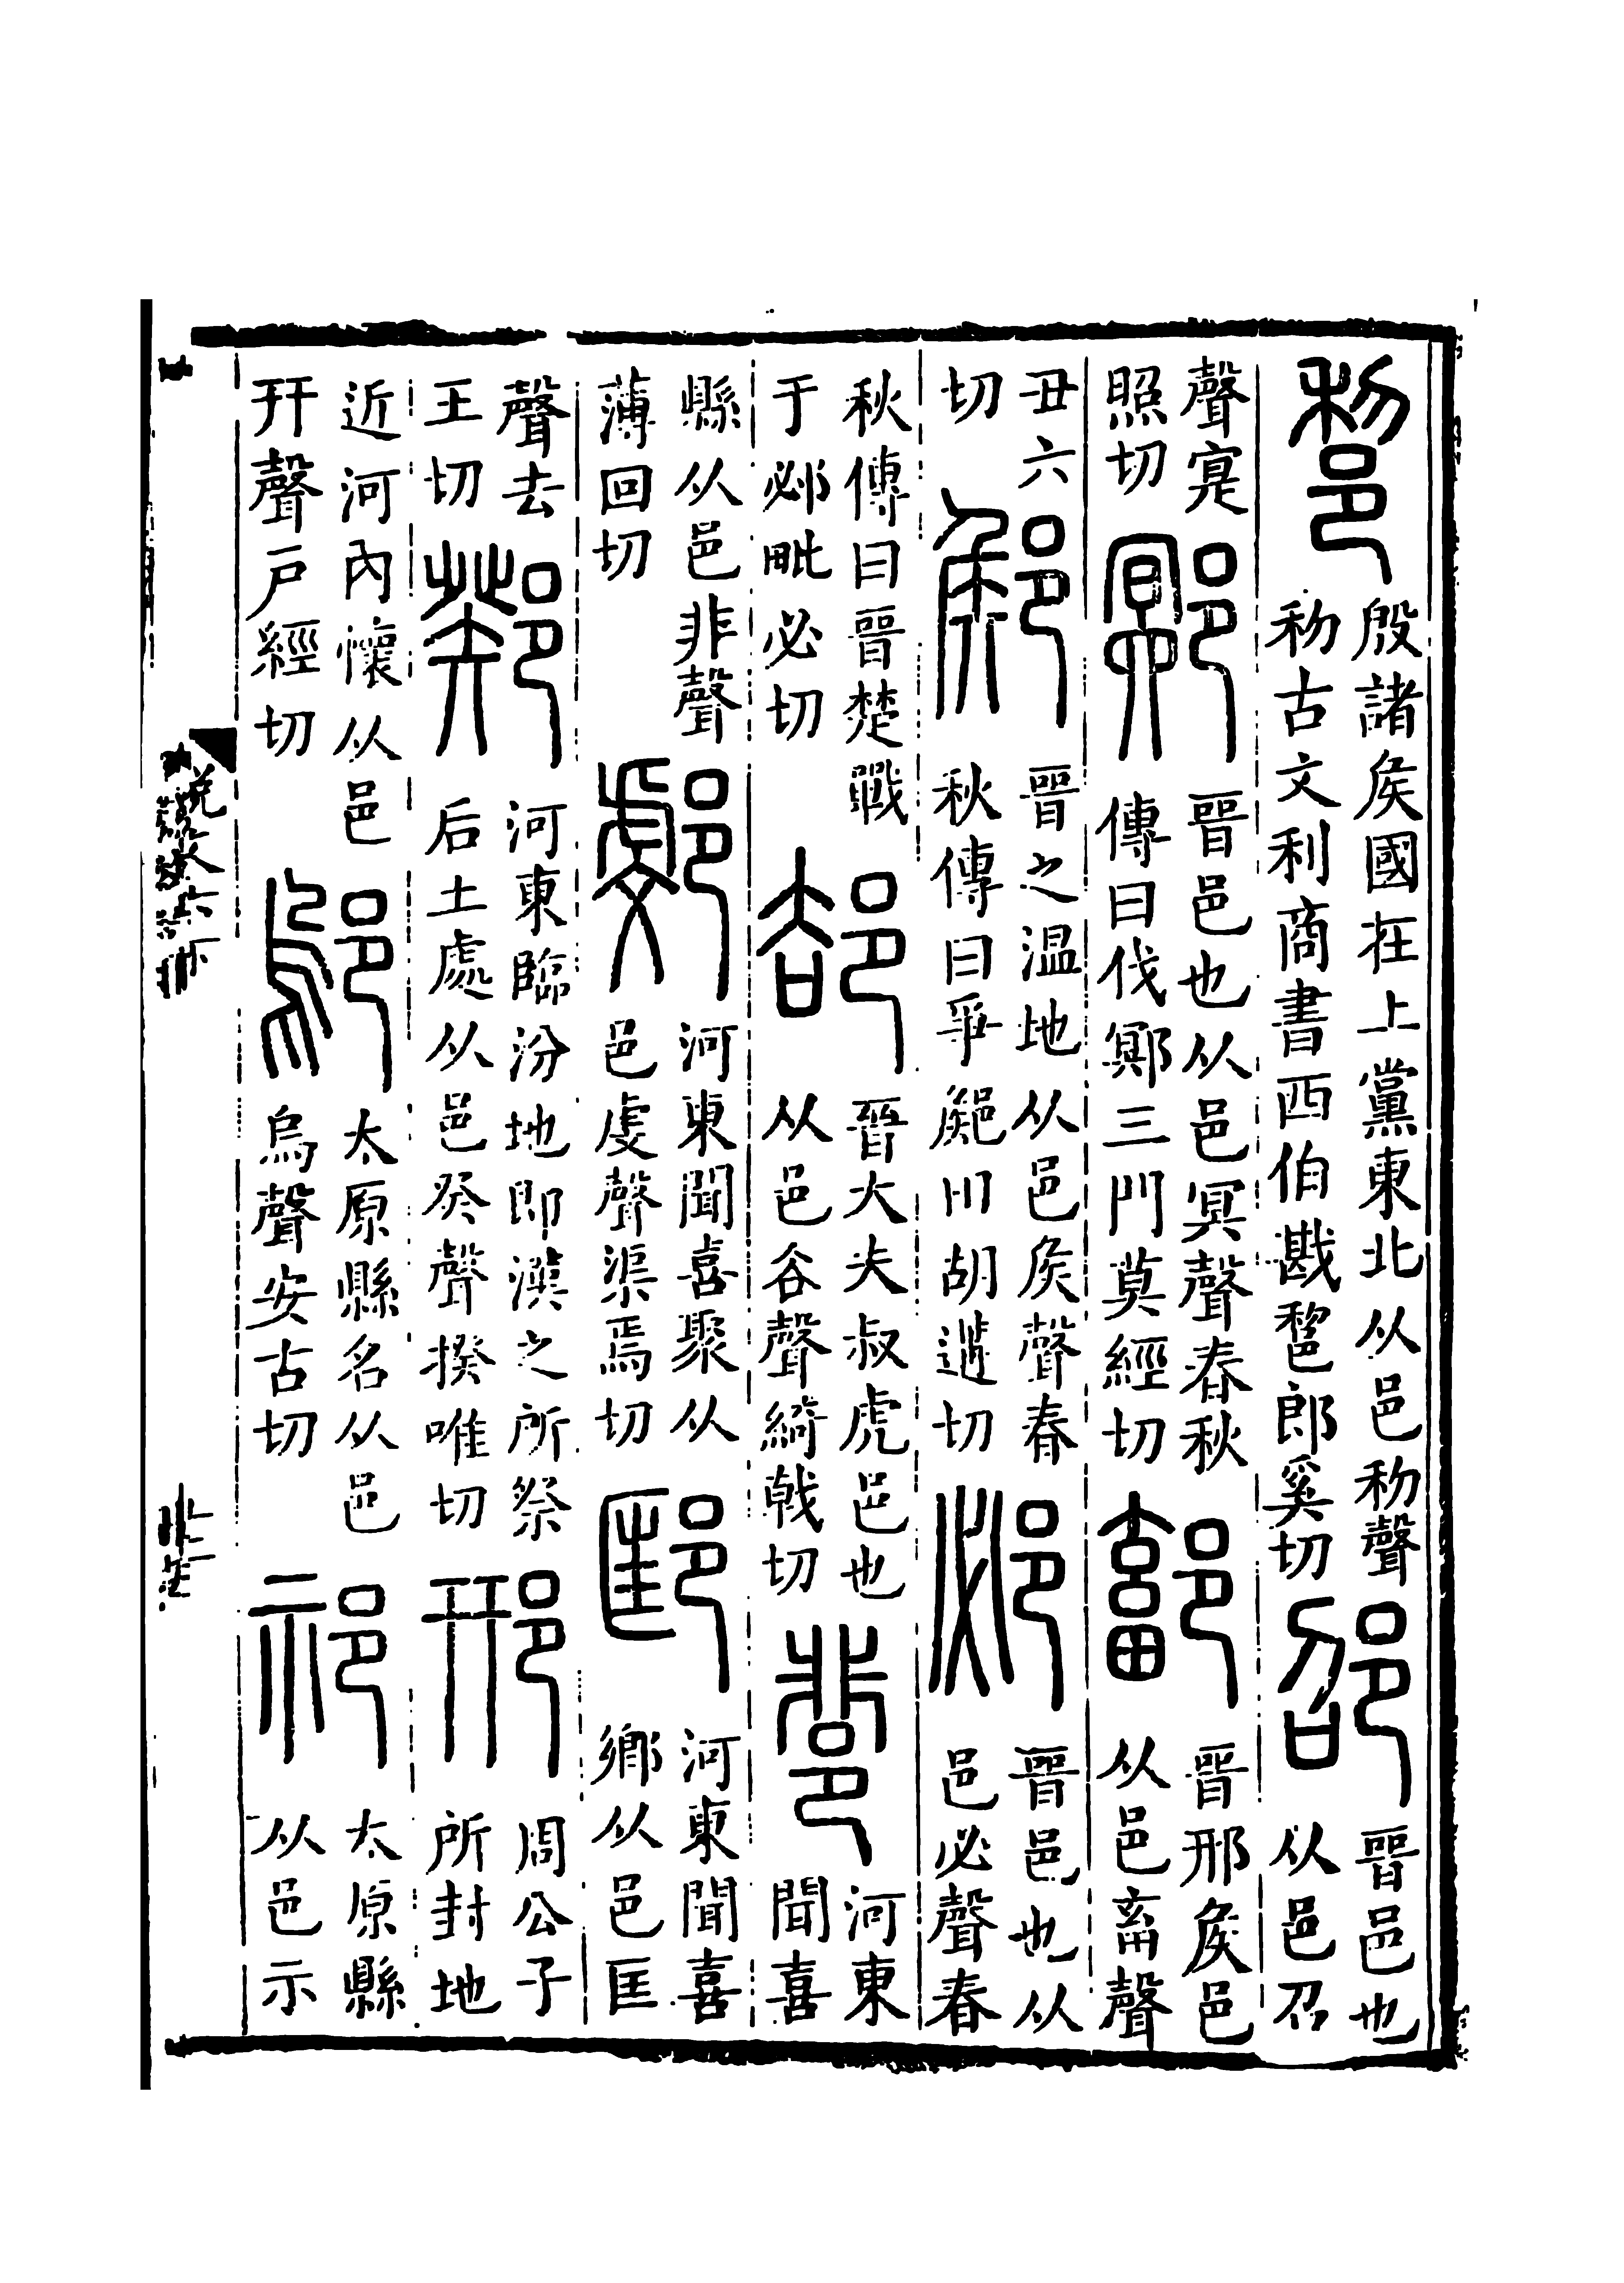 𨛫殷諸矦國在上黨東北从邑𥝢聲𥝢古文利商書西伯戡𨛫郎奚切邵晉邑也从邑召
聲寔照切鄍晉邑也从邑冥聲春秋傳曰伐鄍三門莫經切鄐晉邢矦邑从邑畜聲
丑六切鄇晉之温地从邑矦聲春秋傳曰爭鄇田胡遘切邲晉邑也从邑必聲春
秋傳曰晉楚戰于邲毗必切郤晉大夫叔虎邑也从邑谷聲綺戟切𨛬河東聞喜
縣从邑非聲薄回切𨝋河東聞喜聚从邑虔聲渠焉切邼河東聞喜鄉从邑匡
聲去王切鄈河東臨汾地即漢之所祭后土處从邑癸聲揆唯切邢周公子所封地
近河內懷从邑幵聲戶經切鄔太原縣名从邑烏聲安古切祁太原縣从邑示
說文六下